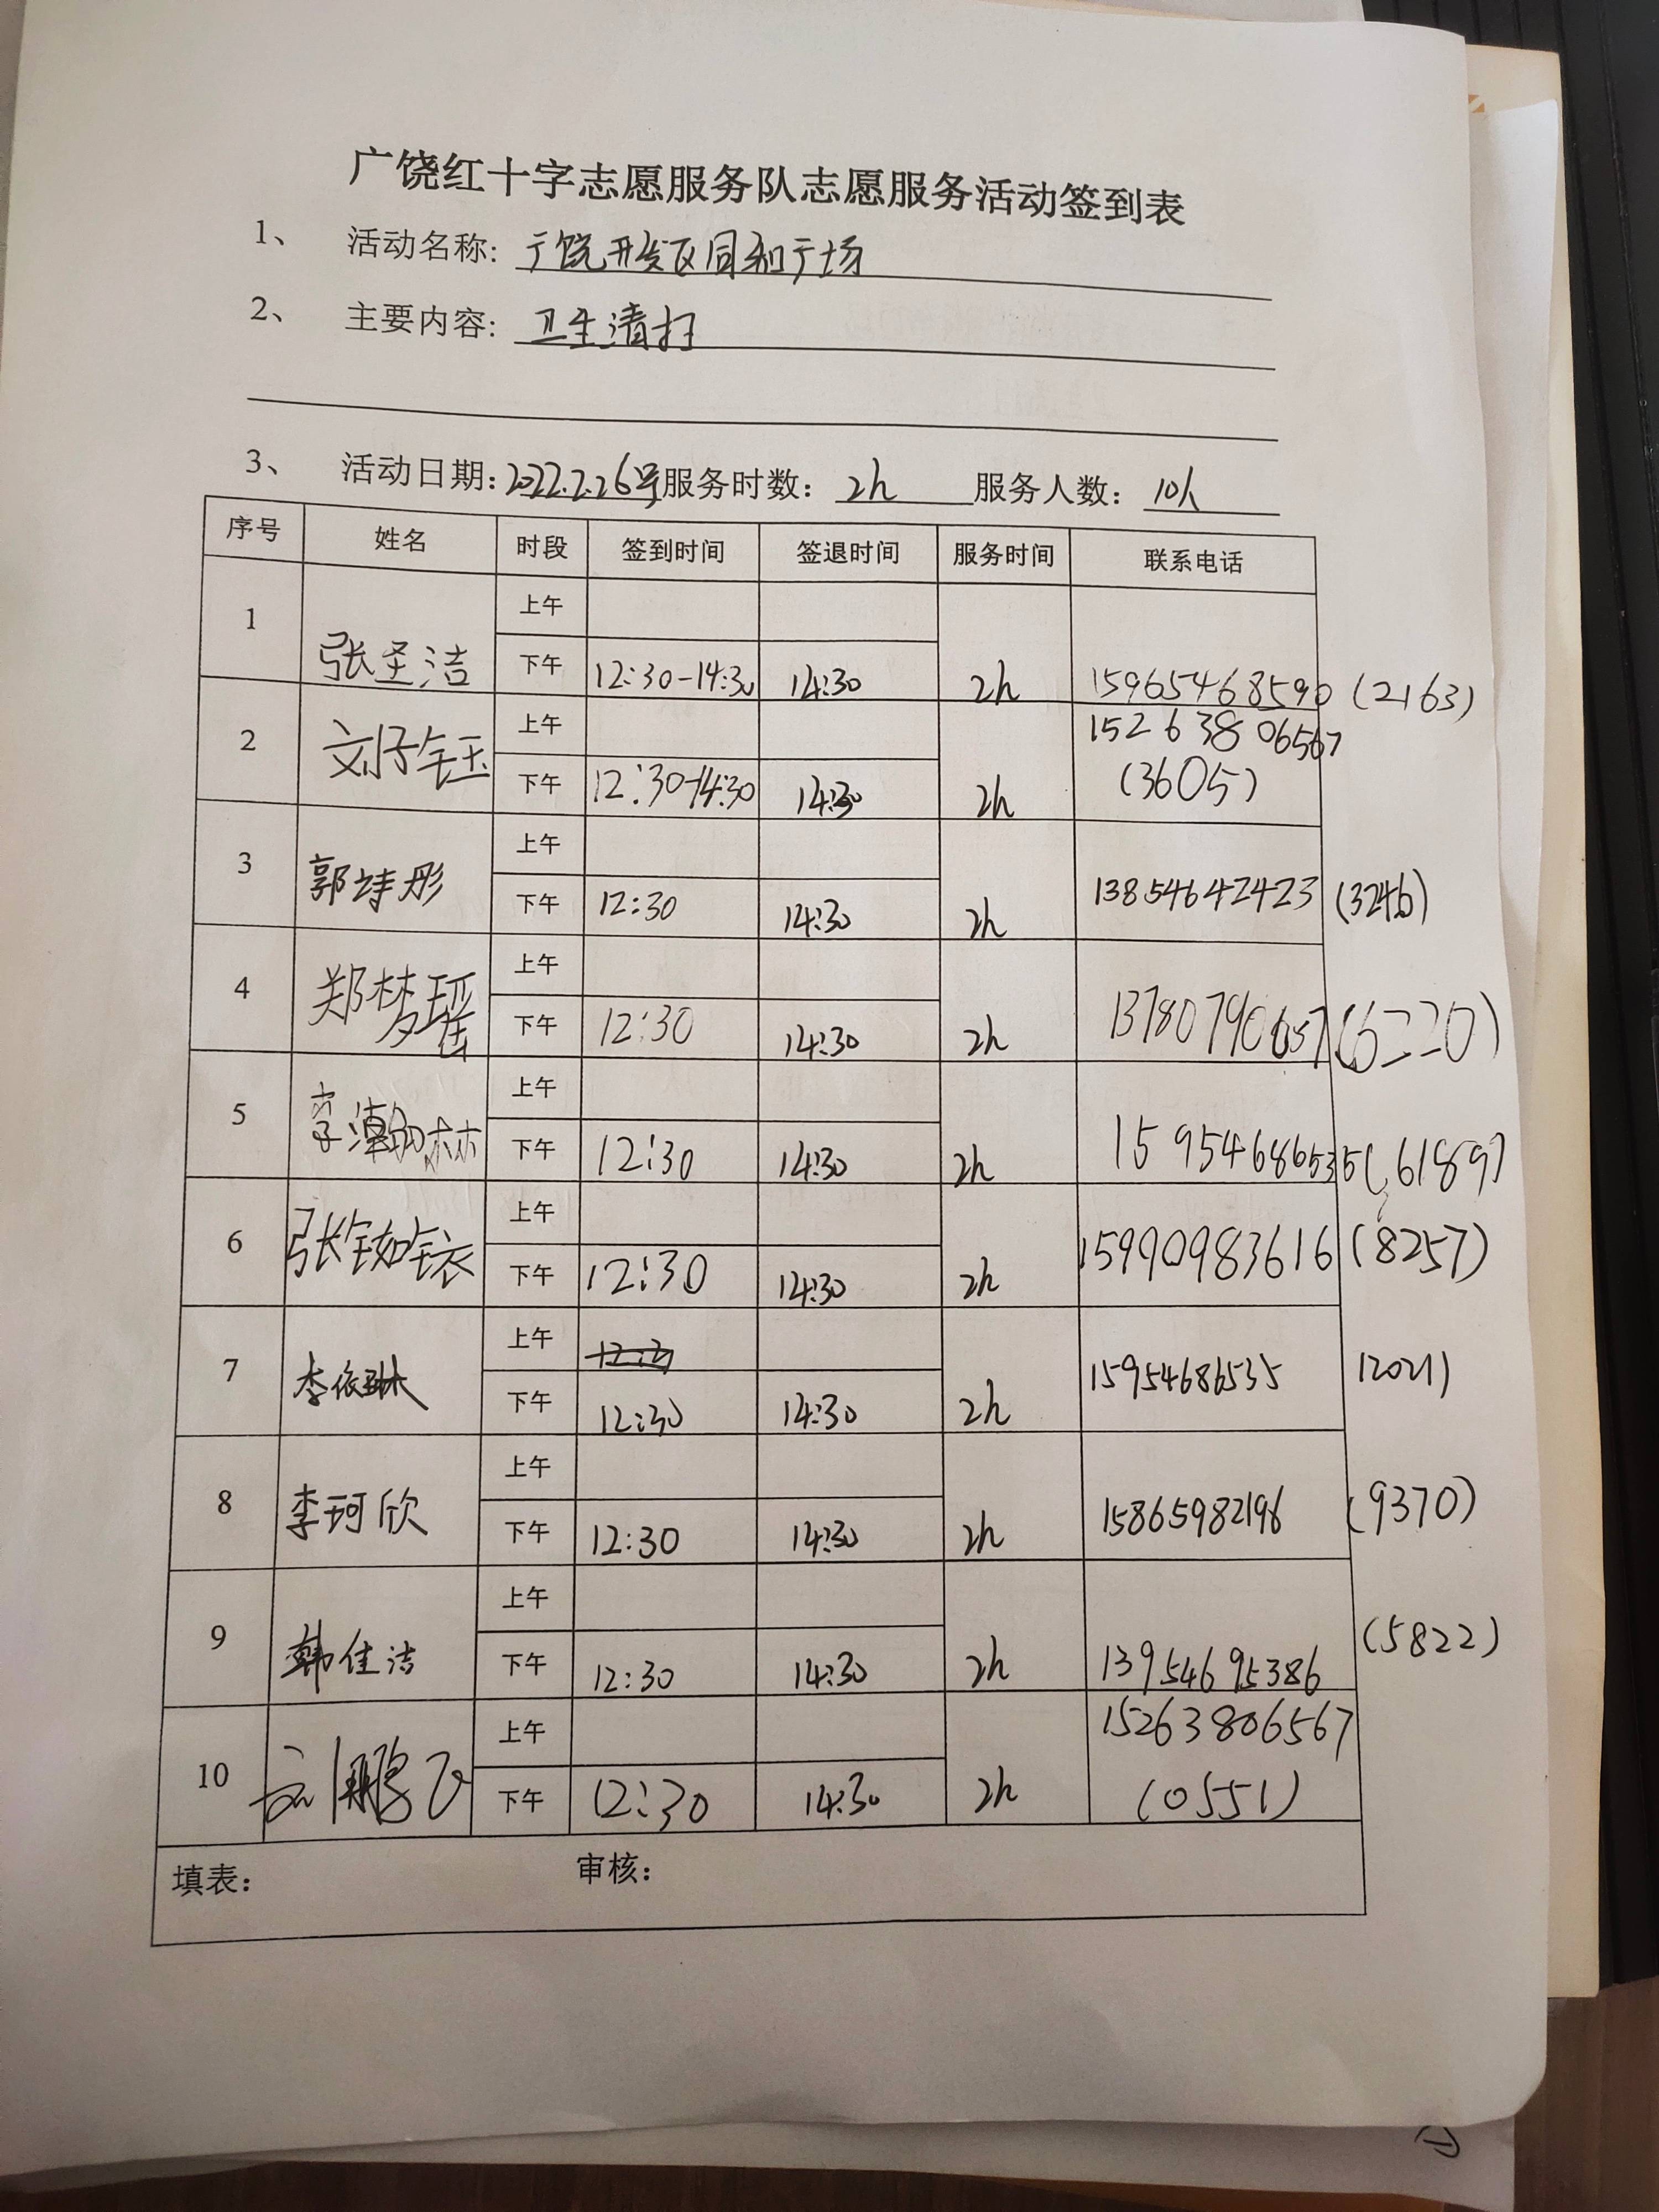 广饶红十字志愿服务队志愿服务活动签到表
1、 活动名称: 广饶开发区同和广场
2、 主要内容: 卫生清扫
3、 活动日期: 2022.2.26号 服务时数: 2h 服务人数: 10人
序号 姓名 时段 签到时间 签退时间 服务时间 联系电话
上午
1 张圣洁 下午 12:30-14:30 14:30 2h 15965468590 (2163)
上午 15263806567
2 刘子钰 下午 12:30-14:30 14:30 2h (3605)
上午
3 郭诗彤 下午 12:30 14:30 2h 13854642423 (3246)
上午
4 郑梦瑶 下午 12:30 14:30 2h 13780790657 (6220)
上午
5 李瀚林 下午 12:30 14:30 2h 15954686535 (6189)
上午
6 张铷铱 下午 12:30 14:30 2h 15990983616 (8257)
上午
7 李依琳 下午 12:30 14:30 2h 15954686535 (2021)
上午
8 李珂欣 下午 12:30 14:30 2h 15865982196 (9370)
上午
9 韩佳洁 下午 12:30 14:30 2h 13954695386 (5822)
上午 15263806567
10 刘鹏飞 下午 12:30 14:30 2h (0551)
填表: 审核: